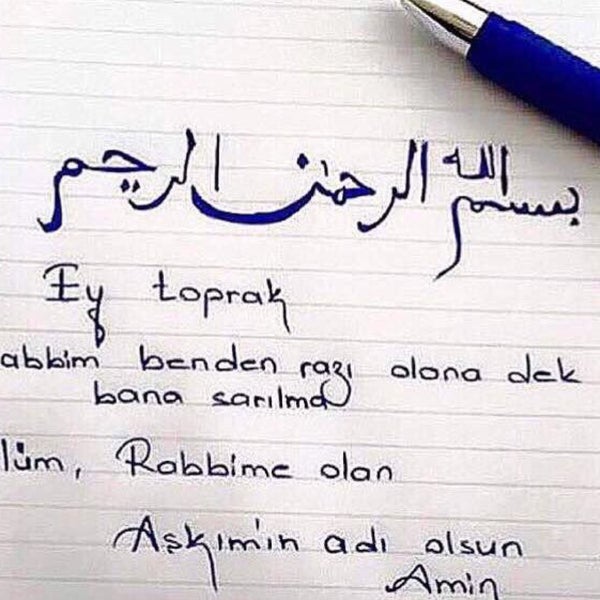 بسم الله الرحمن الرحيم
Ey toprak
abbim benden razı olana dek
bana sarılma
lüm, Rabbime olan
Aşkım'ın adı olsun
Amin